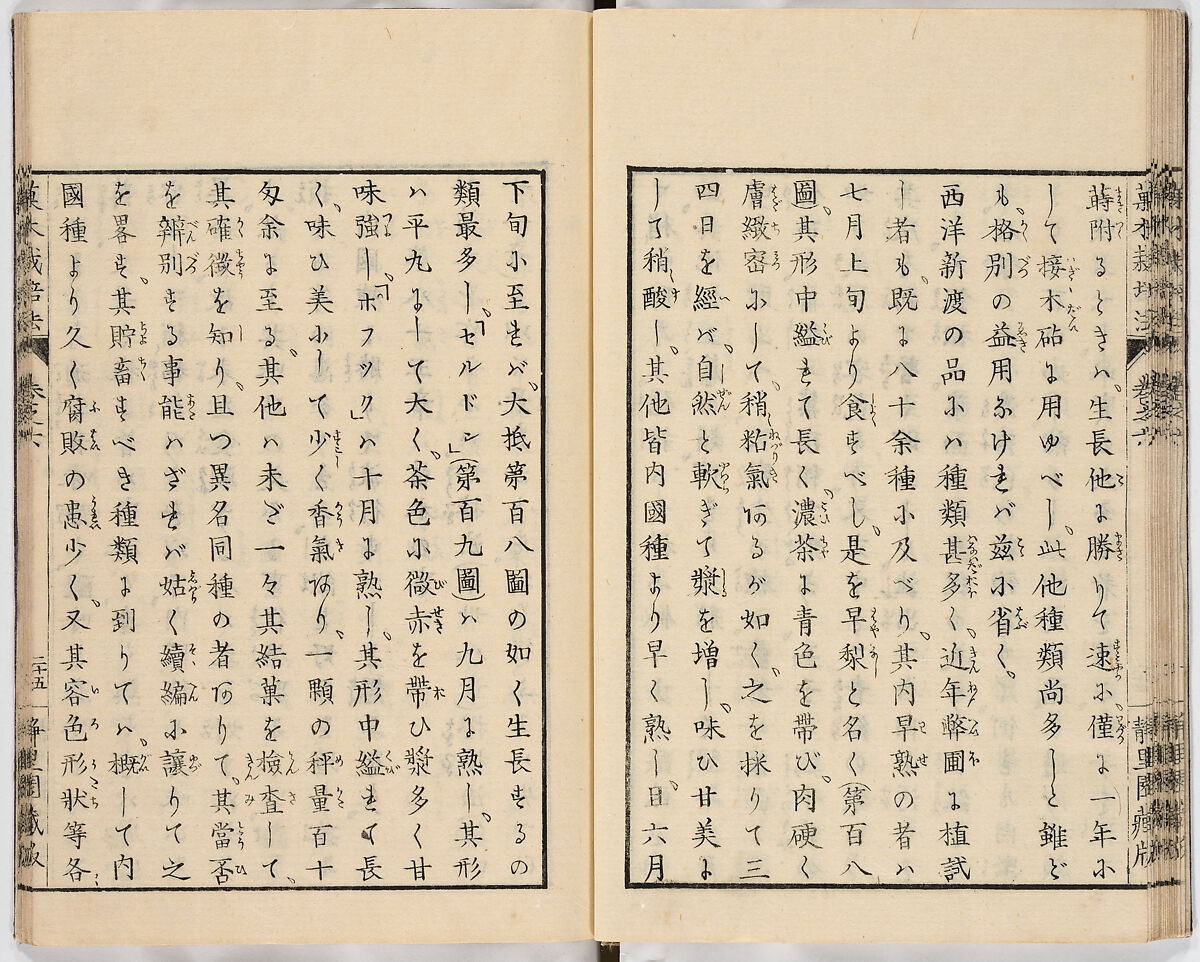 菓木栽培法 卷之六 靜里園藏版
蒔附るときハ、生長他に勝りて速に、僅に一年に
して接木砧に用ゆべし、此他種類尚多しと雖ど
も、格別の益用なければ茲に省く、
西洋新渡の品にハ種類甚多く、近年弊圃に植試
し者も、既に八十余種に及べり、其内早熟の者ハ
七月上旬より食すべし、是を早梨と名く(第百八
圖)其形中縊れて長く濃茶に青色を帶び、肉硬く
膚緻密にして、稍粘氣あるが如く、之を採りて三
四日を經バ、自然と軟ぎて漿を増し、味ひ甘美に
して稍酸し、其他皆内國種より早く熟し、且六月
下旬に至れバ、大抵第百八圖の如く生長するの
類最多し、「セルドン」(第百九圖)ハ九月に熟し、其形
ハ平丸にして大く、茶色に微赤を帶ひ漿多く甘
味強し、「ホフツク」ハ十月に熟し、其形中縊れて長
く、味ひ美にして少く香氣あり、一顆の秤量百十
匁余に至る、其他ハ未ざ一々其結菓を檢査して、
其確徴を知り、且つ異名同種の者ありて、其當否
を辨別する事能ハざれバ姑く續編に讓りて之
を畧す、其貯畜すべき種類に到りてハ、概して内
國種より久く腐敗の患少く、又其容色形狀等各
菓木栽培法 卷之六 二十五 靜里園藏版